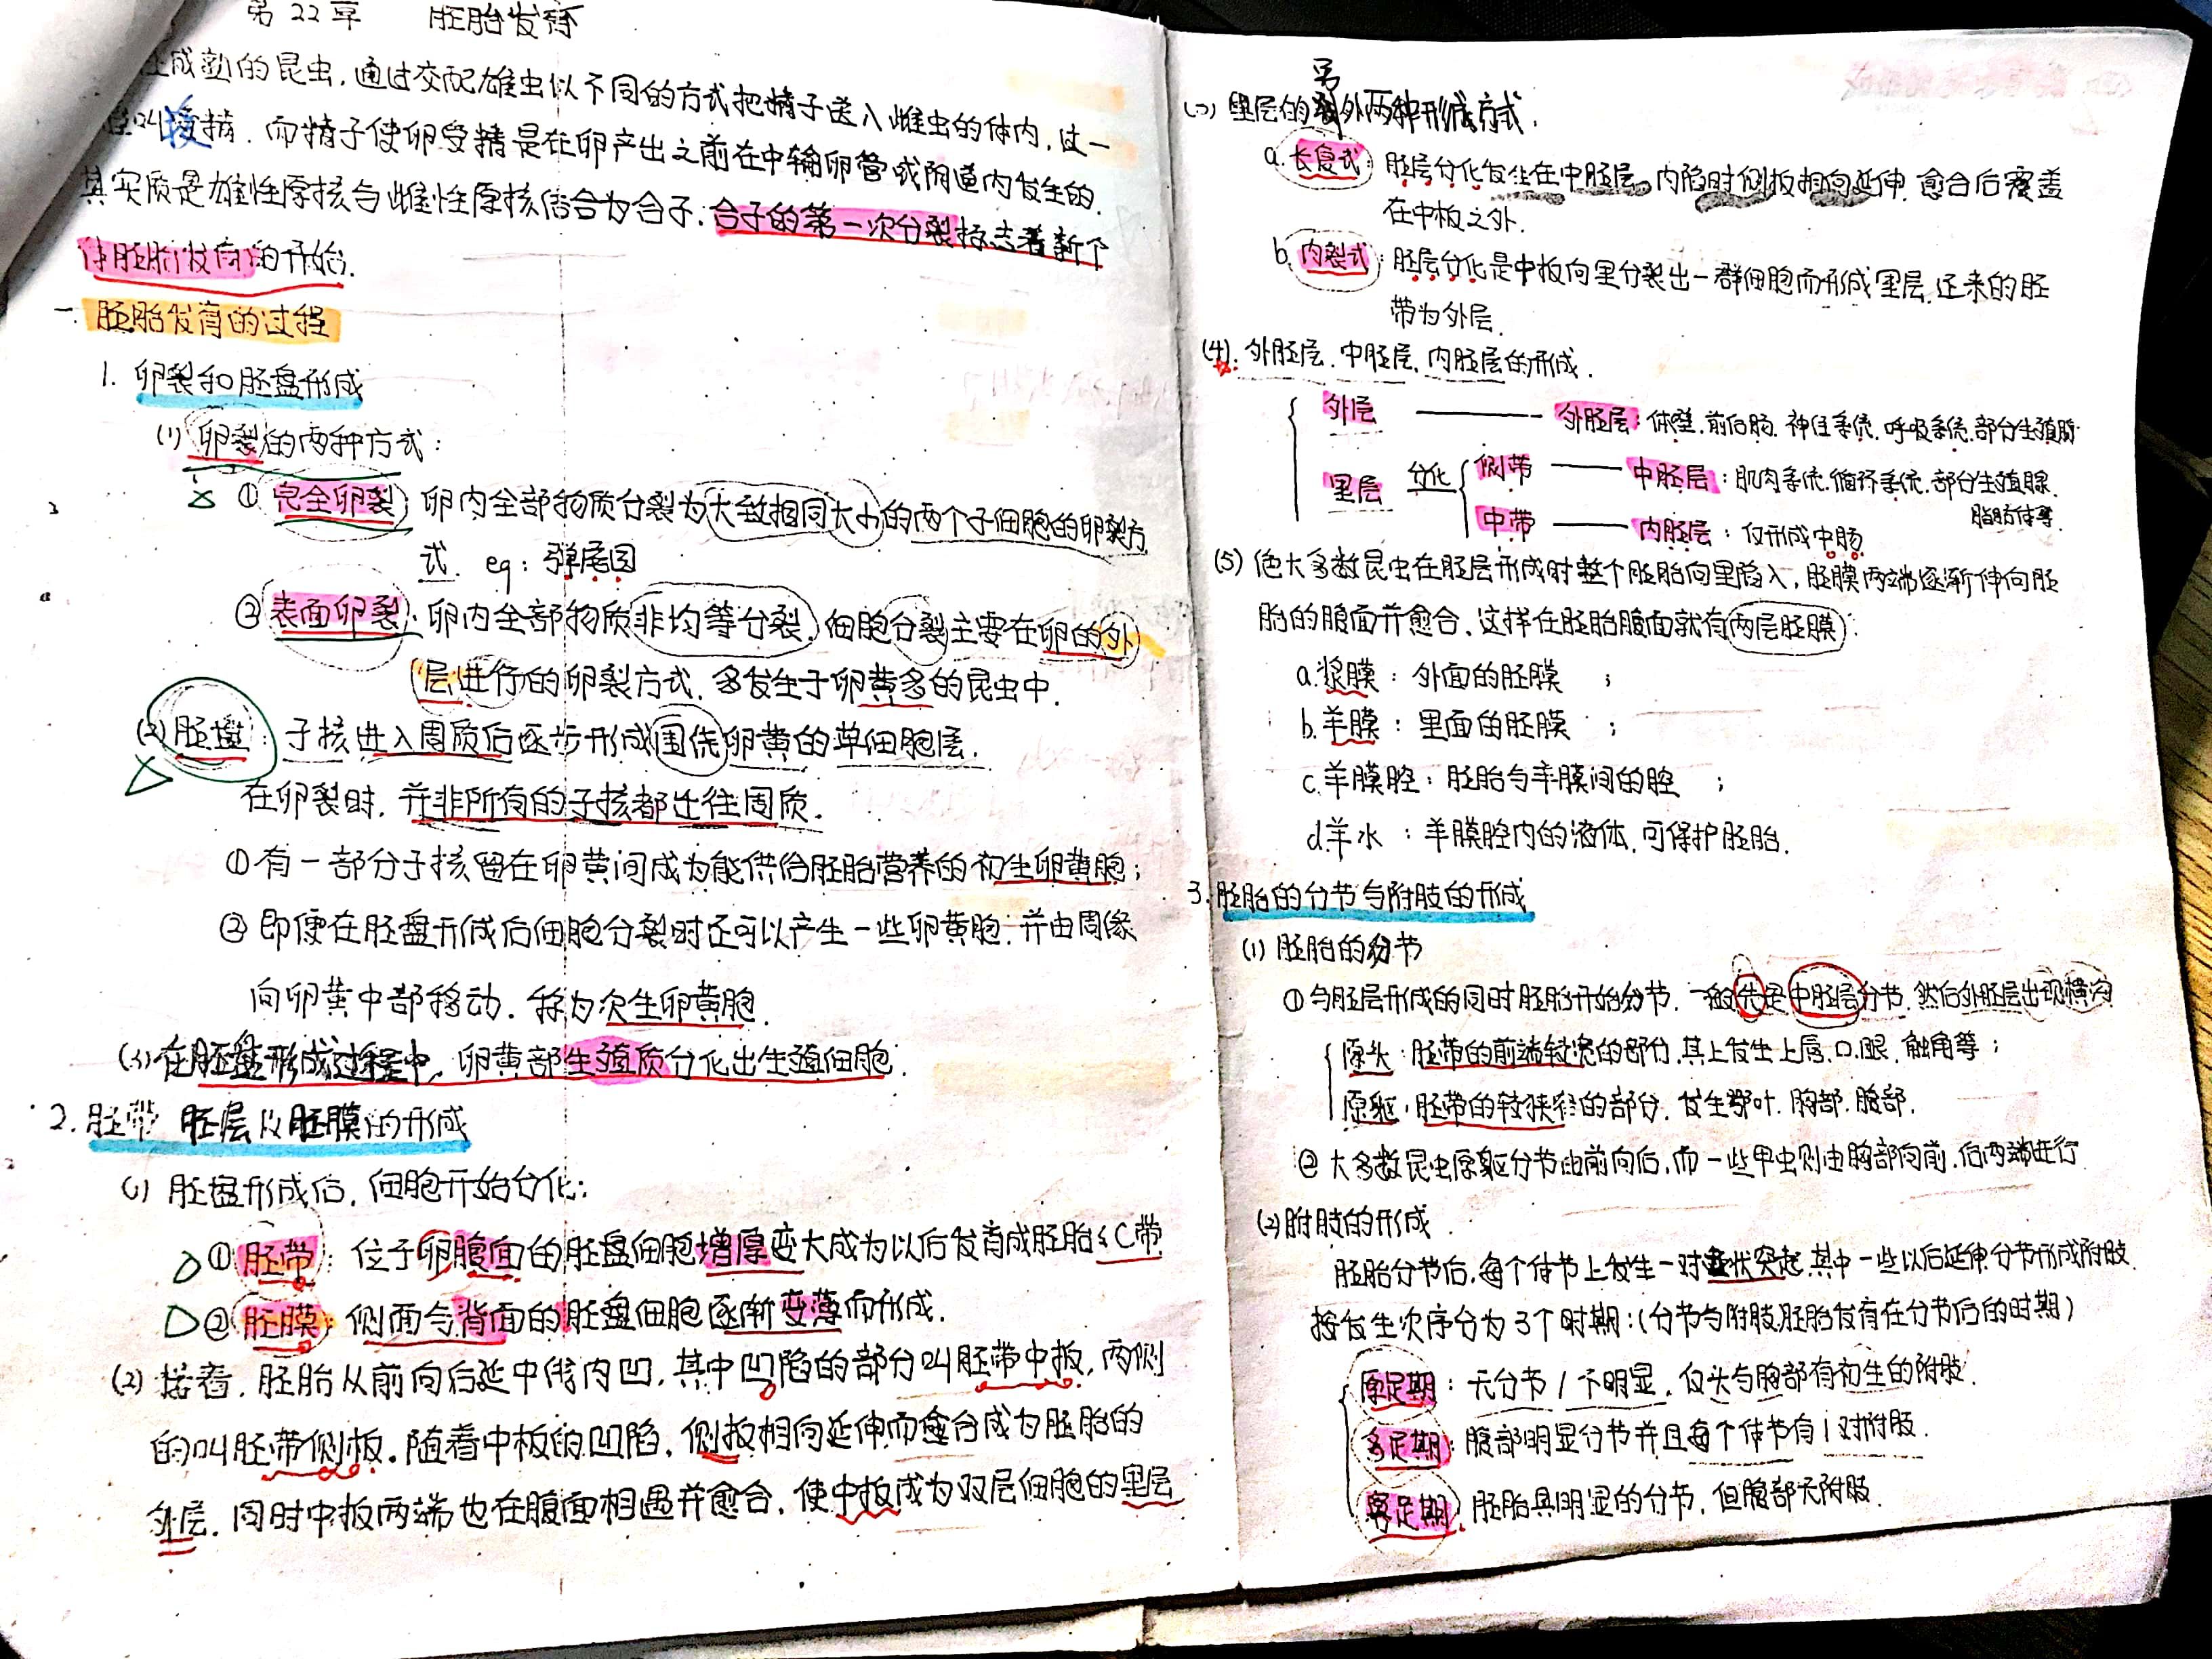 第22章 胚胎发育
性成熟的昆虫，通过交配雄虫以不同的方式把精子送入雌虫的体内，这一
叫授精．而精子使卵受精是在卵产出之前在中输卵管或阴道内发生的．
其实质是雄性原核与雌性原核结合为合子．合子的第一次分裂标志着新个
体胚胎发育的开始．
一. 胚胎发育的过程
1. 卵裂和胚盘形成
(1) 卵裂的两种方式：
① 完全卵裂：卵内全部物质分裂为大致相同大小的两个子细胞的卵裂方
式. eg：弹尾目
② 表面卵裂：卵内全部物质非均等分裂，细胞分裂主要在卵的外
层进行的卵裂方式．多发生于卵黄多的昆虫中．
(2) 胚盘：子核进入周质后逐步形成围绕卵黄的单细胞层．
在卵裂时．并非所有的子核都迁往周质．
① 有一部分子核留在卵黄间成为能供给胚胎营养的初生卵黄胞；
② 即便在胚盘形成后细胞分裂时还可以产生一些卵黄胞；并由周缘
向卵黄中部移动．称为次生卵黄胞．
(3) 在胚盘形成过程中，卵黄部生殖质分化出生殖细胞．
2. 胚带 胚层以胚膜的形成
(1) 胚盘形成后，细胞开始分化：
① 胚带：位于卵腹面的胚盘细胞增厚变大成为以后发育成胚胎的带
② 胚膜：侧面与背面的胚盘细胞逐渐变薄而形成．
(2) 接着，胚胎从前向后延中线内凹，其中凹陷的部分叫胚带中板，两侧
的叫胚带侧板．随着中板的凹陷，侧板相向延伸而愈合成为胚胎的
外层．同时中板两端也在腹面相遇并愈合，使中板成为双层细胞的里层
(3) 里层的另外两种形成方式．
a. 长复式：胚层分化发生在中胚层，内陷时侧板相向延伸．愈合后覆盖
在中板之外．
b. 内裂式：胚层分化是中板向里分裂出一群细胞而形成里层，还来的胚
带为外层．
(4). 外胚层．中胚层．内胚层的形成．
外层 —— 外胚层：体壁．前后肠．神经系统．呼吸系统．部分生殖腺
里层 分化 侧带 —— 中胚层：肌肉系统．循环系统．部分生殖腺．
脂肪体等．
中带 —— 内胚层：仅形成中肠
(5) 绝大多数昆虫在胚层形成时整个胚胎向里陷入，胚膜两端逐渐伸向胚
胎的腹面并愈合．这样在胚胎腹面就有两层胚膜：
a. 浆膜：外面的胚膜；
b. 羊膜：里面的胚膜；
c. 羊膜腔：胚胎与羊膜间的腔；
d. 羊水：羊膜腔内的液体，可保护胚胎．
3. 胚胎的分节与附肢的形成
(1) 胚胎的分节
① 与胚层形成的同时胚胎开始分节．一般先是中胚层分节．然后外胚层出现横沟
原头：胚带的前端较宽的部分．其上发生上唇．口．眼．触角等；
原躯：胚带的较狭窄的部分．发生颚叶．胸部．腹部．
② 大多数昆虫原躯分节由前向后，而一些甲虫则由胸部向前、后两端进行．
(2) 附肢的形成．
胚胎分节后，每个体节上发生一对囊状突起，其中一些以后延伸分节形成附肢．
按发生次序分为3个时期：(分节与附肢胚胎发育在分节后的时期)
原足期：无分节/不明显，仅头与胸部有初生的附肢．
多足期：腹部明显分节并且每个体节有1对附肢．
寡足期：胚胎具明显的分节，但腹部无附肢．